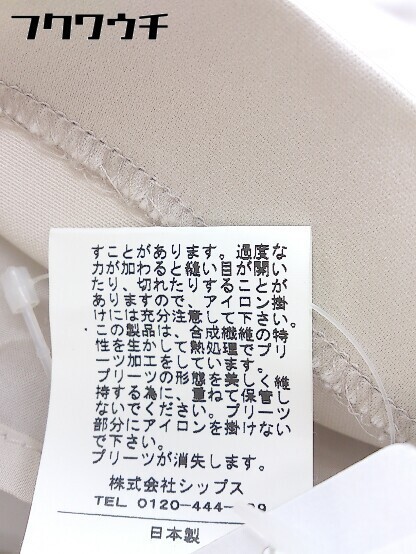 フクワウチ
すことがあります。過度な
力が加わると縫い目が開い
たり、切れたりすることが
ありますので、アイロン掛
けには充分注意して下さい。
この製品は、合成繊維の特
性を生かして熱処理でプリ
ーツ加工をしています。
プリーツの形態を美しく維
持する為に、重ねて保管し
ないでください。プリーツ
部分にアイロンを掛けない
で下さい。
プリーツが消失します。
株式会社シップス
TEL 0120-444-
日本製